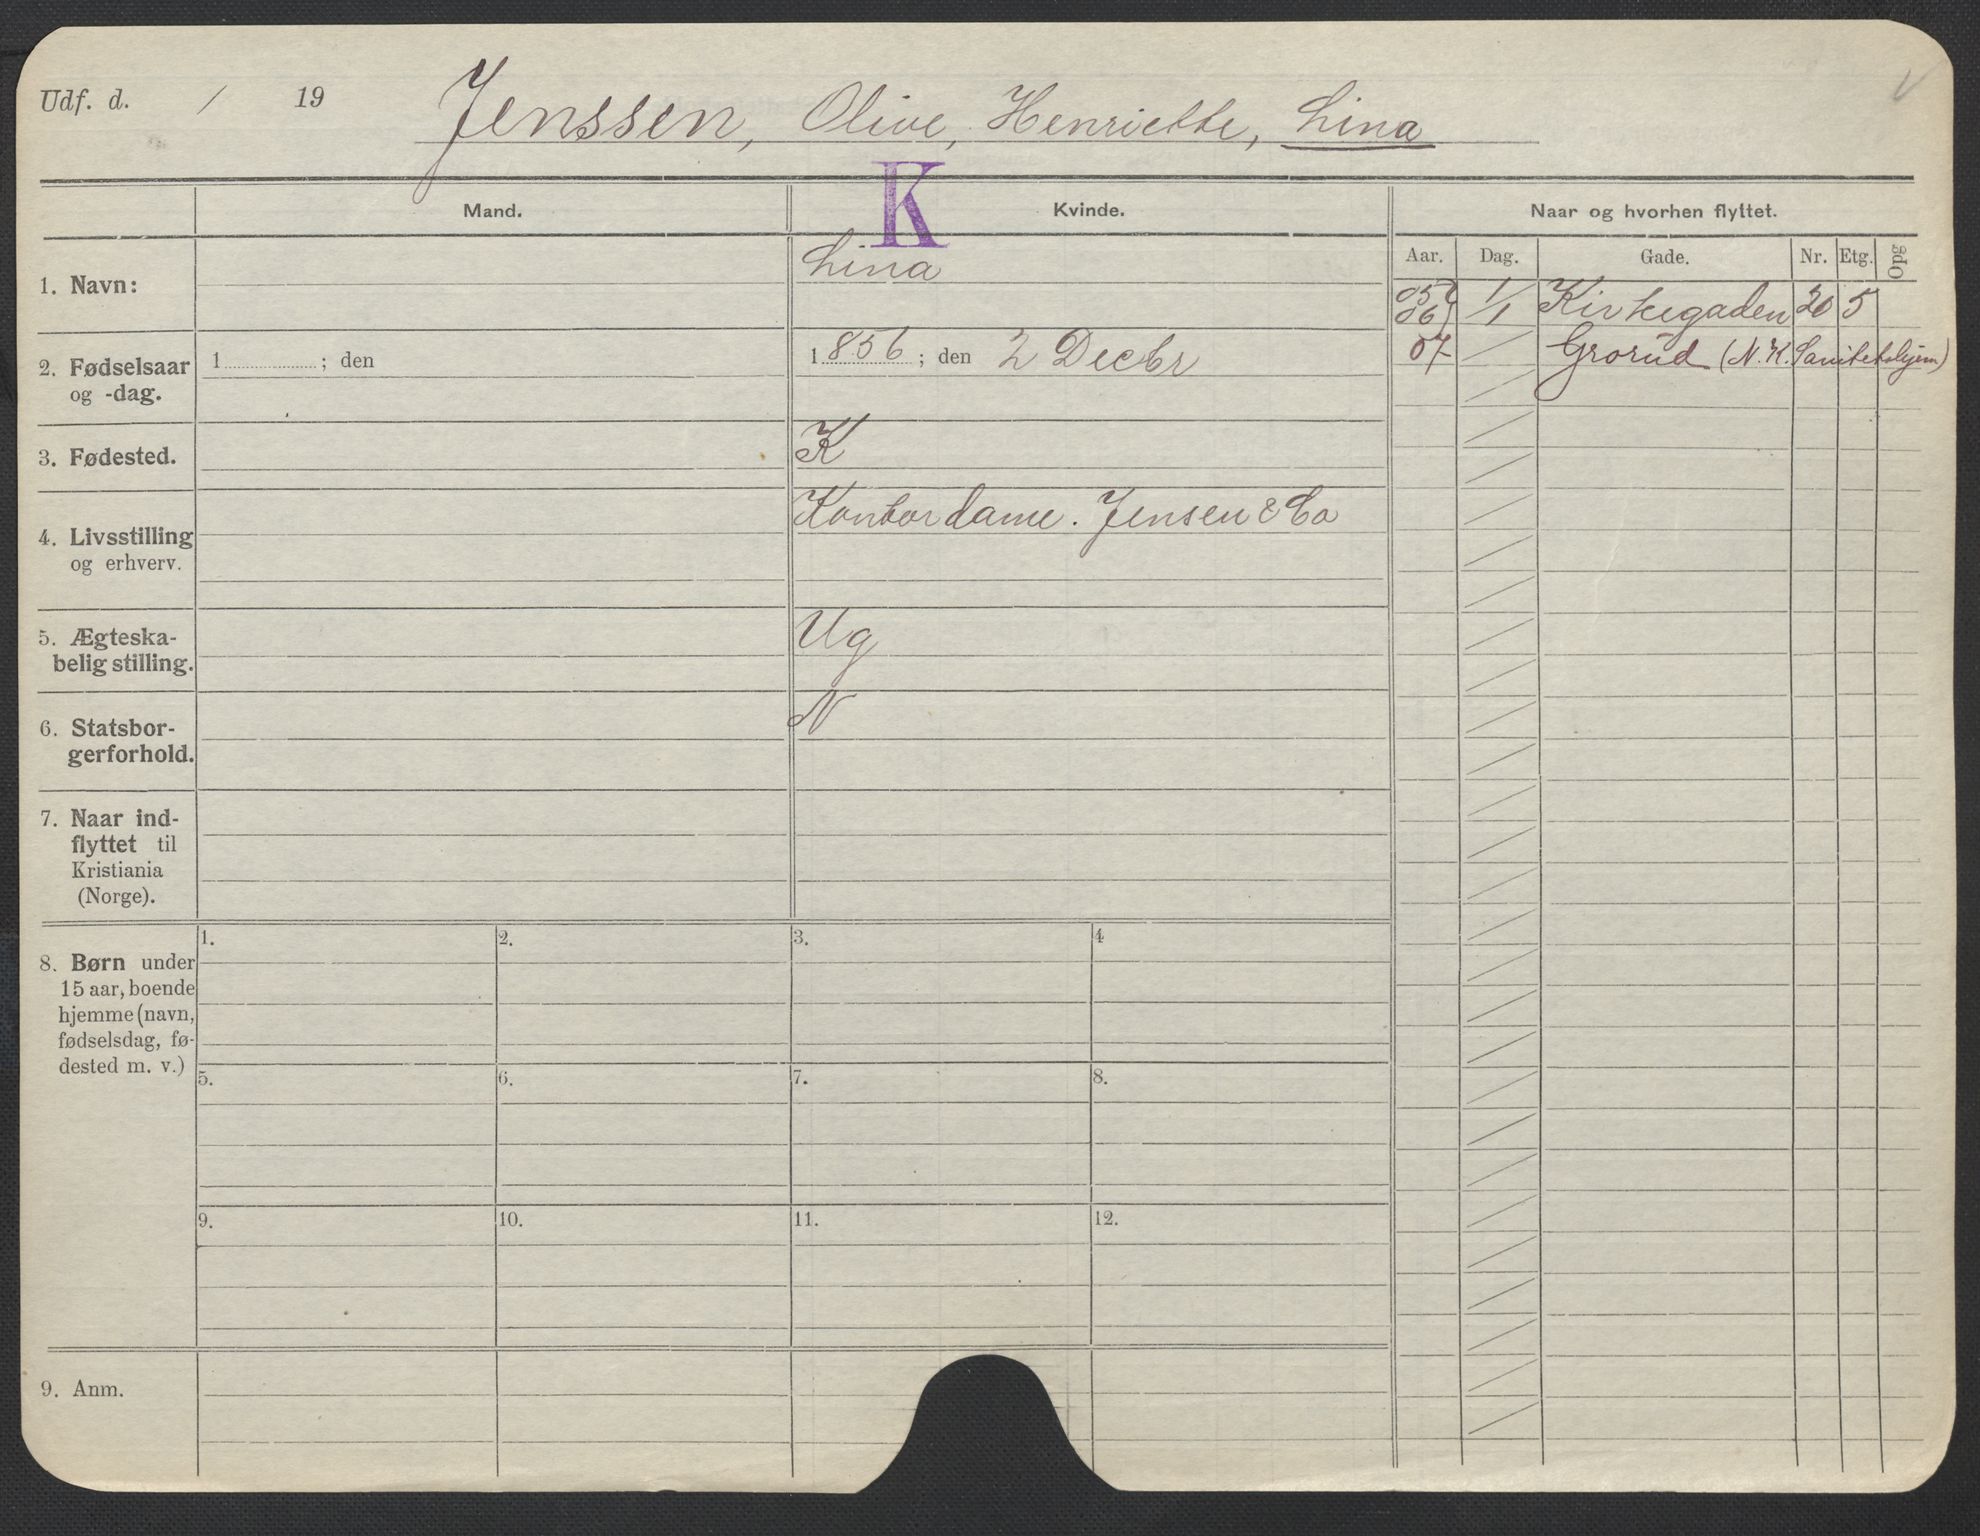 Udf. d. / 19
Jenssen, Olive, Henriette, Lina
K
Mand.
Kvinde.
Naar og hvorhen flyttet.
Aar. Dag. Gade. Nr. Etg. Opg
1. Navn:
Lina
05
06 1/1 Kirkegaden 20 5
07 / Grorud (N. K. Sanitetshjem)
2. Fødselsaar
og -dag.
1 ; den
1 856 ; den 2 Decbr
3. Fødested.
K
4. Livsstilling
og erhverv.
Kontordame. Jensen & Co
5. Ægteska-
belig stilling.
Ug
6. Statsbor-
gerforhold.
N
7. Naar ind-
flyttet til
Kristiania
(Norge).
8. Børn under
15 aar, boende
hjemme (navn,
fødselsdag, fø-
dested m. v.)
1. 2. 3. 4
5. 6. 7. 8.
9. 10. 11. 12.
9. Anm.